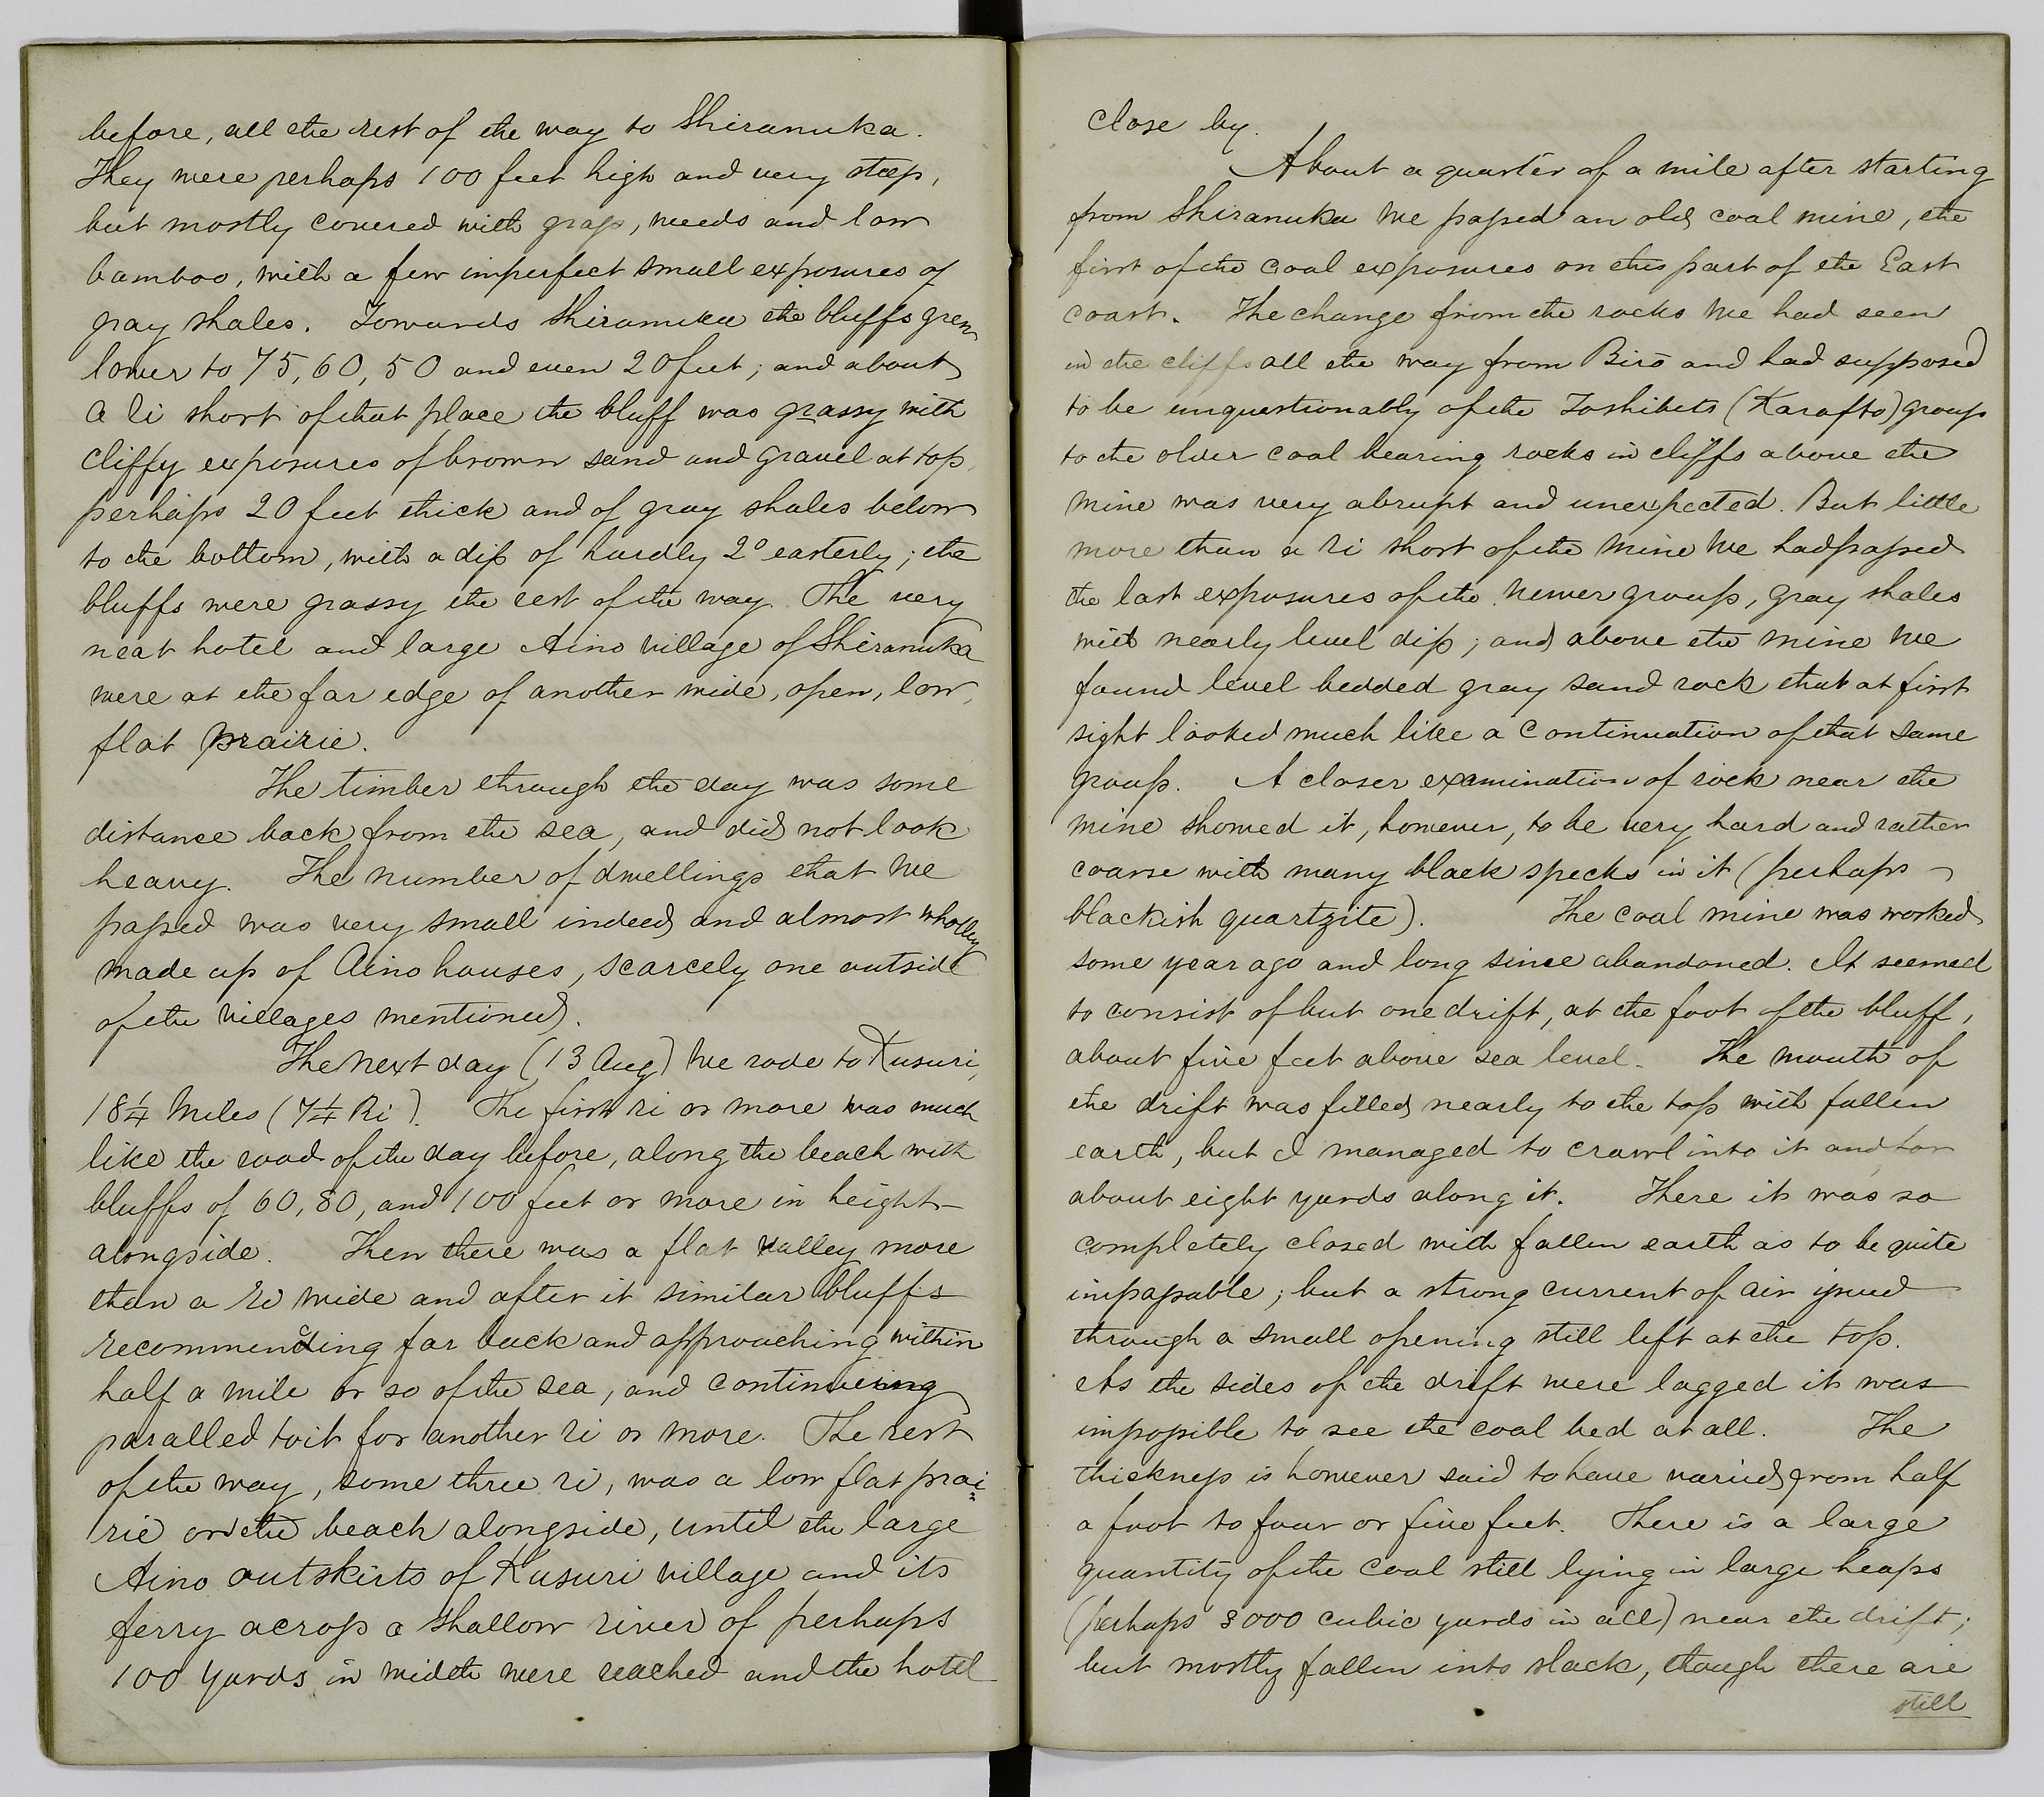 before, all the rest of the way to Shiranuka.
They were perhaps 100 feet high and very steep,
but mostly covered with grass, weeds and low
bamboo, with a few imperfect small exposures of
gray shales. Towards Shiranuka the bluffs grew
lower to 75, 60, 50 and even 20 feet; and about
a ri short of that place the bluff was grassy with
cliffy exposures of brown sand and gravel at top,
perhaps 20 feet thick and of gray shales below
to the bottom, with a dip of hardly 2° easterly; the
bluffs were grassy the rest of the way. The very
neat hotel and large Aino village of Shiranuka
were at the far edge of another wide, open, low,
flat prairie.
The timber through the day was some
distance back from the sea, and did not look
heavy. The number of dwellings that we
passed was very small indeed and almost wholly
made up of Aino houses, scarcely one outside
of the villages mentioned.
The next day (13 Aug) we rode to Kusuri,
18 1/4 Miles (7 1/4 Ri). The first ri or more was much
like the road of the day before, along the beach with
bluffs of 60, 80, and 100 feet or more in height
alongside. Then there was a flat valley more
than a ri wide and after it similar bluffs
recommencing far back and approaching within
half a mile or so of the sea, and continueing
paralled to it for another ri or more. The rest
of the way, some three ri, was a low flat prai=
rie or the beach alongside, until the large
Aino outskirts of Kusuri village and its
ferry across a shallow river of perhaps
100 yards in width were reached and the hotel
close by.
About a quarter of a mile after starting
from Shiranuka we passed an old coal mine, the
first of the coal exposures on this part of the East
coast. The change from the rocks we had seen
in the cliffs all the way from Birō and had supposed
to be unquestionably of the Toshibets (Karafto) group
to the older coal bearing rocks in cliffs above the
mine was very abrupt and unexpected. But little
more than a ri short of the mine we had passed
the last exposures of the newer group, gray shales
with nearly level dip; and above the mine we
found level bedded gray sand rock that at first
sight looked much like a continuation of that same
group. A closer examination of rock near the
mine showed it, however, to be very hard and rather
coarse with many black specks in it (perhaps
blackish quartzite). The coal mine was worked
some year ago and long since abandoned. It seemed
to consist of but one drift, at the foot of the bluff,
about five feet above sea level. The mouth of
the drift was filled nearly to the top with fallen
earth, but I managed to crawl into it and for
about eight yards along it. There it was so
completely closed with fallen earth as to be quite
impassable; but a strong current of air issued
through a small opening still left at the top.
As the sides of the drift were lagged it was
impossible to see the coal bed at all. The
thickness is however said to have varied from half
a foot to four or five feet. There is a large
quantity of the coal still lying in large heaps
(perhaps 3000 cubic yards in all) near the drift;
but mostly fallen into slack, though there are
still